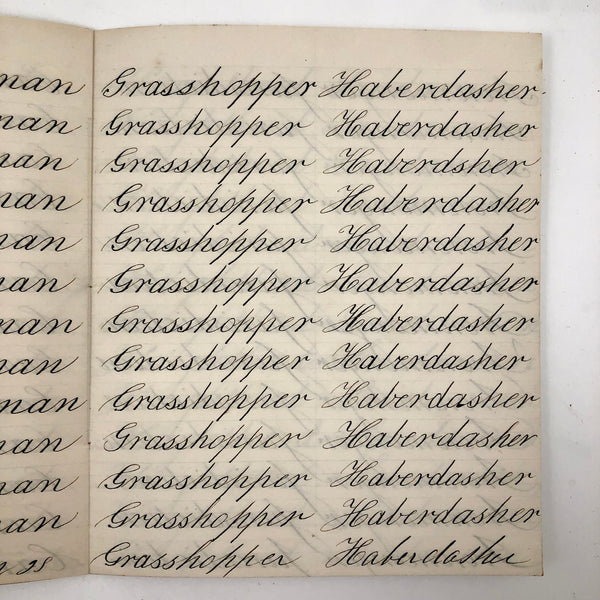 Grasshopper Haberdasher.
Grasshopper Haberdasher
Grasshopper Haberdsher
Grasshopper Haberdasher
Grasshopper Haberdasher
Grasshopper Haberdasher
Grasshopper Haberdasher
Grasshopper Haberdasher
Grasshopper Haberdasher
Grasshopper Haberdasher
Grasshopper Haberdasher
Grasshopper Haberdasher
Grasshopper Haberdasher